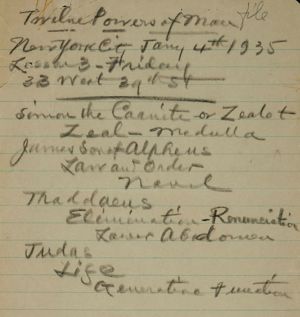 Twelve Powers of Man file
New York City Jany 4th 1935
Lesson 3 - Friday
33 West 39th St
Simon the Caanite or Zealot
Zeal - Medulla
James Son of Alpheus
Law and Order
Navel
Thaddaeus
Elimination - Renunciation
Lower Abodomen
Judas
Life
Generative Function